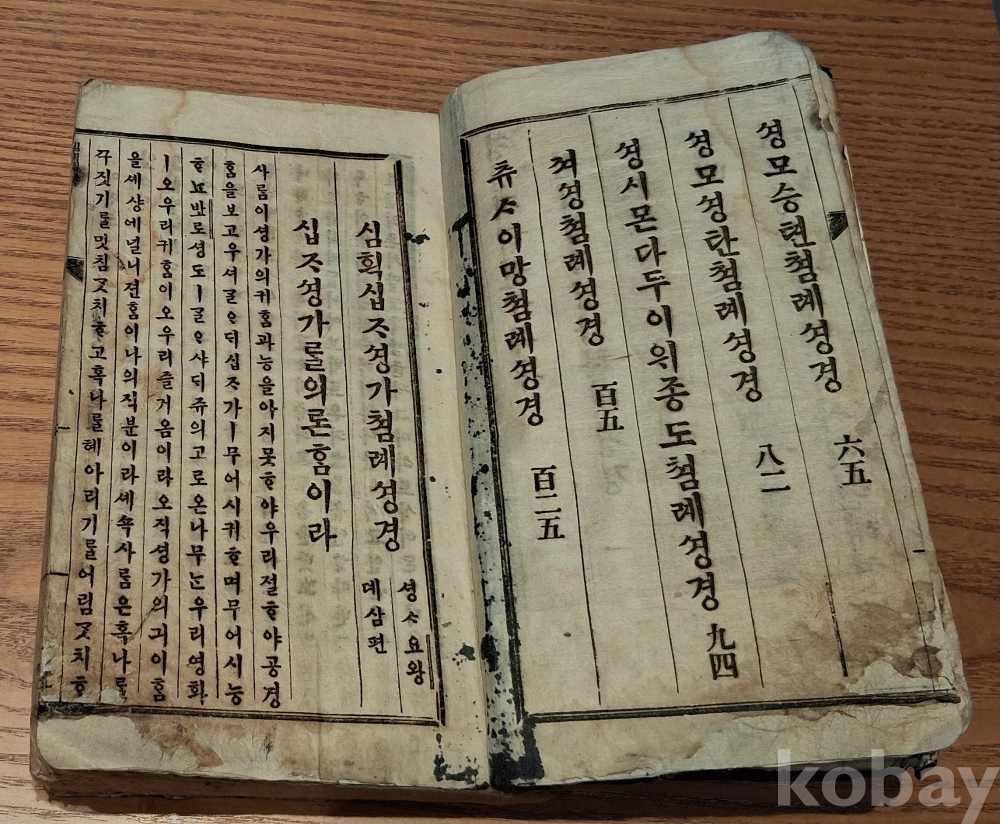 셩모승텬쳠례셩경 六五
셩모셩탄쳠례셩경 八二
셩시몬다두이위종도쳠례셩경 九四
져셩쳠례셩경 百五
츄ᄉ이망쳠례셩경 百二五
심획십ᄌ셩가쳠례셩경
셩ᄉ요왕
데삼편
십ᄌ셩가ᄅᆞᆯ의론ᄒᆞᆷ이라
사ᄅᆞᆷ이셩가의귀ᄒᆞᆷ과능을아지못ᄒᆞ야우리절ᄒᆞ야공경
ᄒᆞᆷ을보고우서ᄀᆞᆯᄋᆞᄃᆡ십ᄌ가ㅣ무어시귀ᄒᆞ며무어시능
ᄒᆞ뇨밧로셩도ㅣᄀᆞᆯᄋᆞ샤ᄃᆡ쥬의고로온나무ᄂᆞᆫ우리영화
ㅣ오우리귀ᄒᆞᆷ이오우리즐거옴이라오직셩가의긔이ᄒᆞᆷ
을셰샹에널니젼ᄒᆞᆷ이나의직분이라셰쇽사ᄅᆞᆷ은혹나ᄅᆞᆯ
ᄭᅮ짓기ᄅᆞᆯ밋침ᄀᆞᆺ치ᄒᆞ고혹나ᄅᆞᆯ혜아리기ᄅᆞᆯ어림ᄀᆞᆺ치ᄒᆞ
kobay